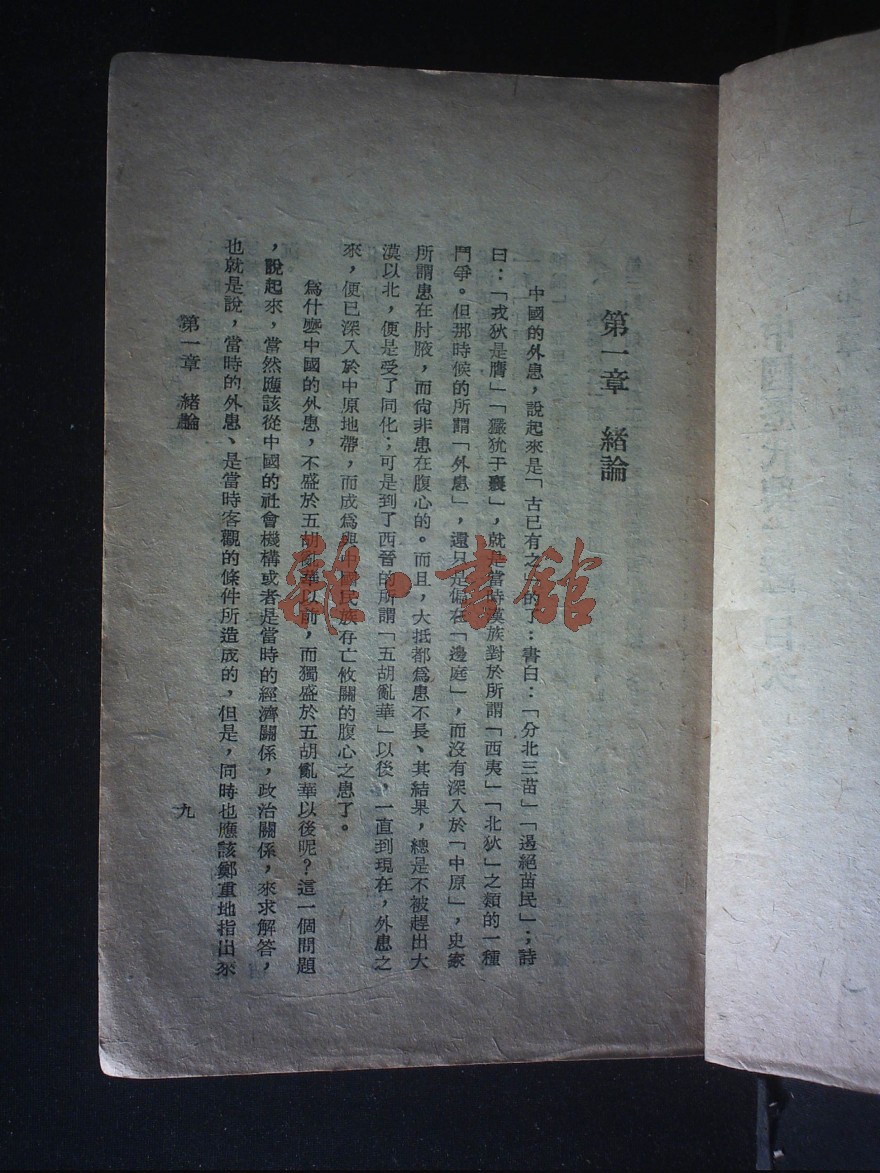 第一章 緒論
中國的外患，說起來是「古已有之」的了：書白：「分北三苗」「遏絕苗民」；詩
曰：「戎狄是膺」「玁狁于襄」，就是當時漢族對於所謂「西夷」「北狄」之類的一種
鬥爭。但那時候的所謂「外患」，還只是偏在「邊庭」，而沒有深入於「中原」，史家
所謂患在肘腋，而尙非患在腹心的。而且，大抵都爲患不長、其結果，總是不被趕出大
漠以北，便是受了同化；可是到了西晉的所謂「五胡亂華」以後，一直到現在，外患之
來，便已深入於中原地帶，而成爲與中國民族存亡攸關的腹心之患了。
爲什麼中國的外患，不盛於五胡亂華以前，而獨盛於五胡亂華以後呢？這一個問題
，說起來，當然應該從中國的社會機構或者是當時的經濟關係，政治關係，來求解答，
也就是說，當時的外患、是當時客觀的條件所造成的，但是，同時也應該鄭重地指出來
第一章 緒論
九
雜·書館